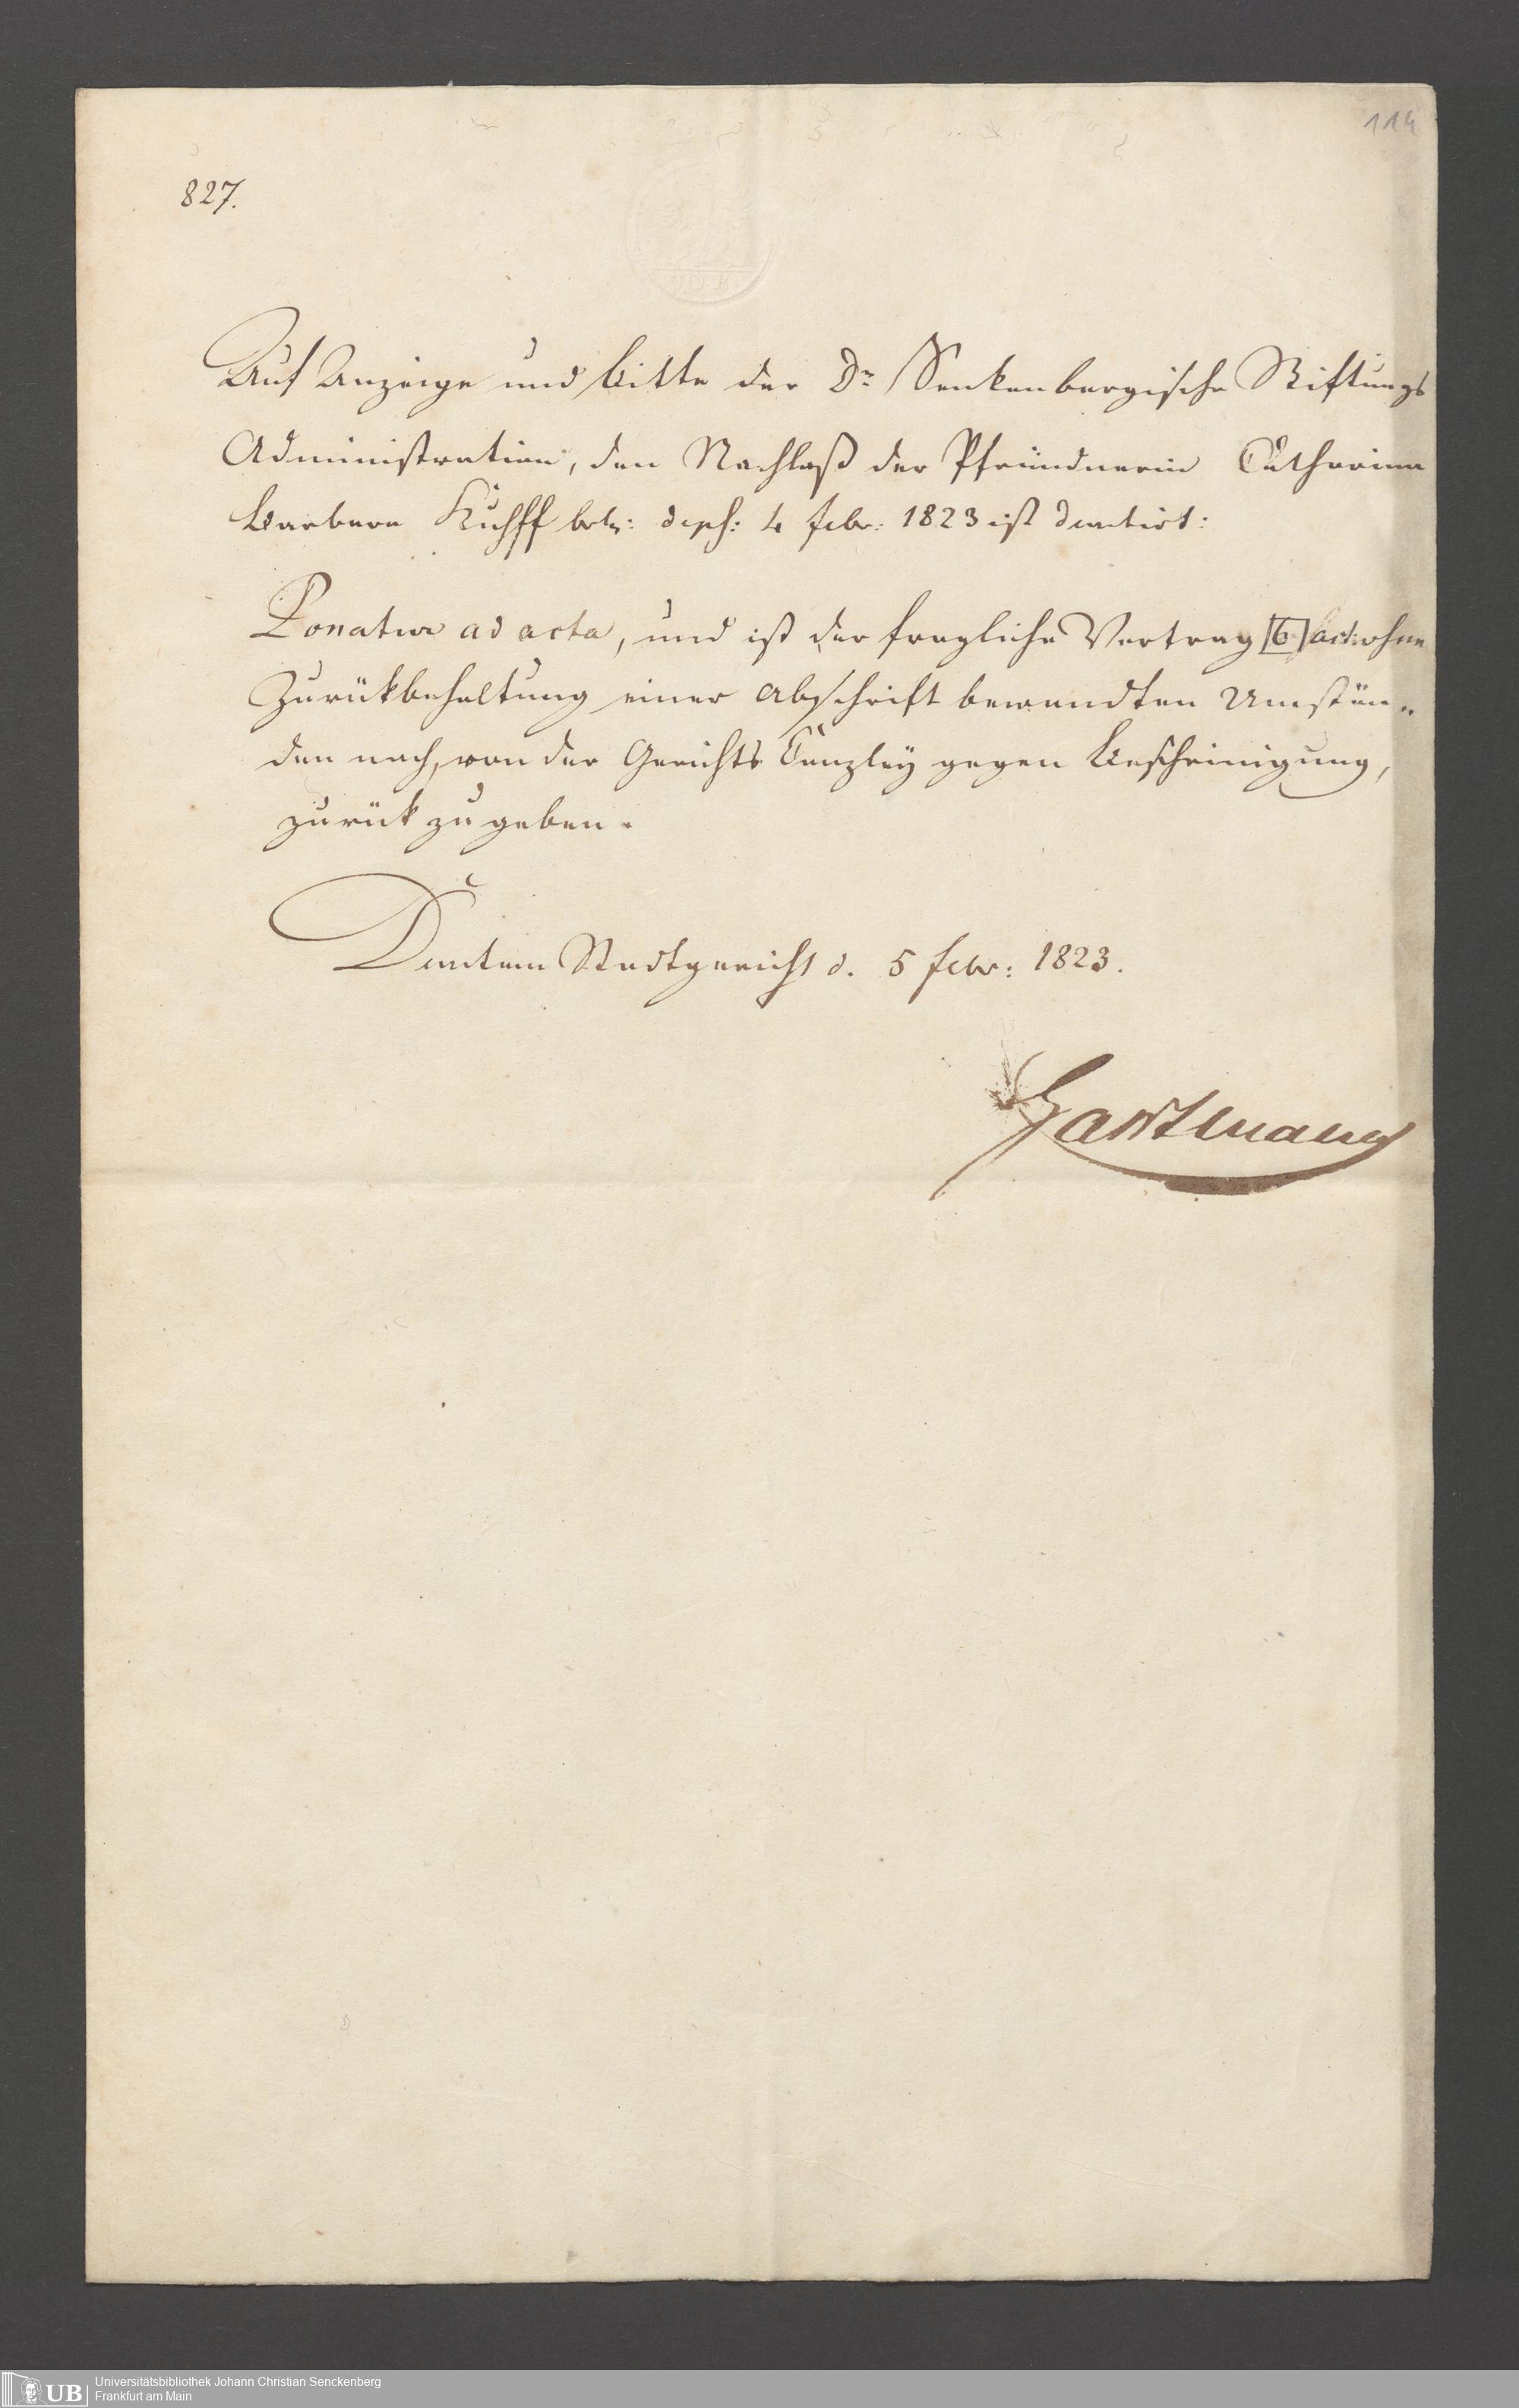 114
827.
Auf Anzeige und bitte der Dr Senkenbergische Stiftungs
Administration, den Nachlaß der Pfründnerin Catharina
Barbara Kuhff betr: deps: 4 febr: 1823 ist decretirt:
Ponatur ad acta, und ist der fragliche Vertrag [6] act: ohne
Zurükbehaltung einer Abschrift bewandten Umstän„
den nach, von der Gerichts Canzley gegen Bescheinigung,
zurück zu geben.
Decretum Stadtgericht d. 5 febr: 1823.
Hartmann
UB
Universitätsbibliothek Johann Christian Senckenberg
Frankfurt am Main